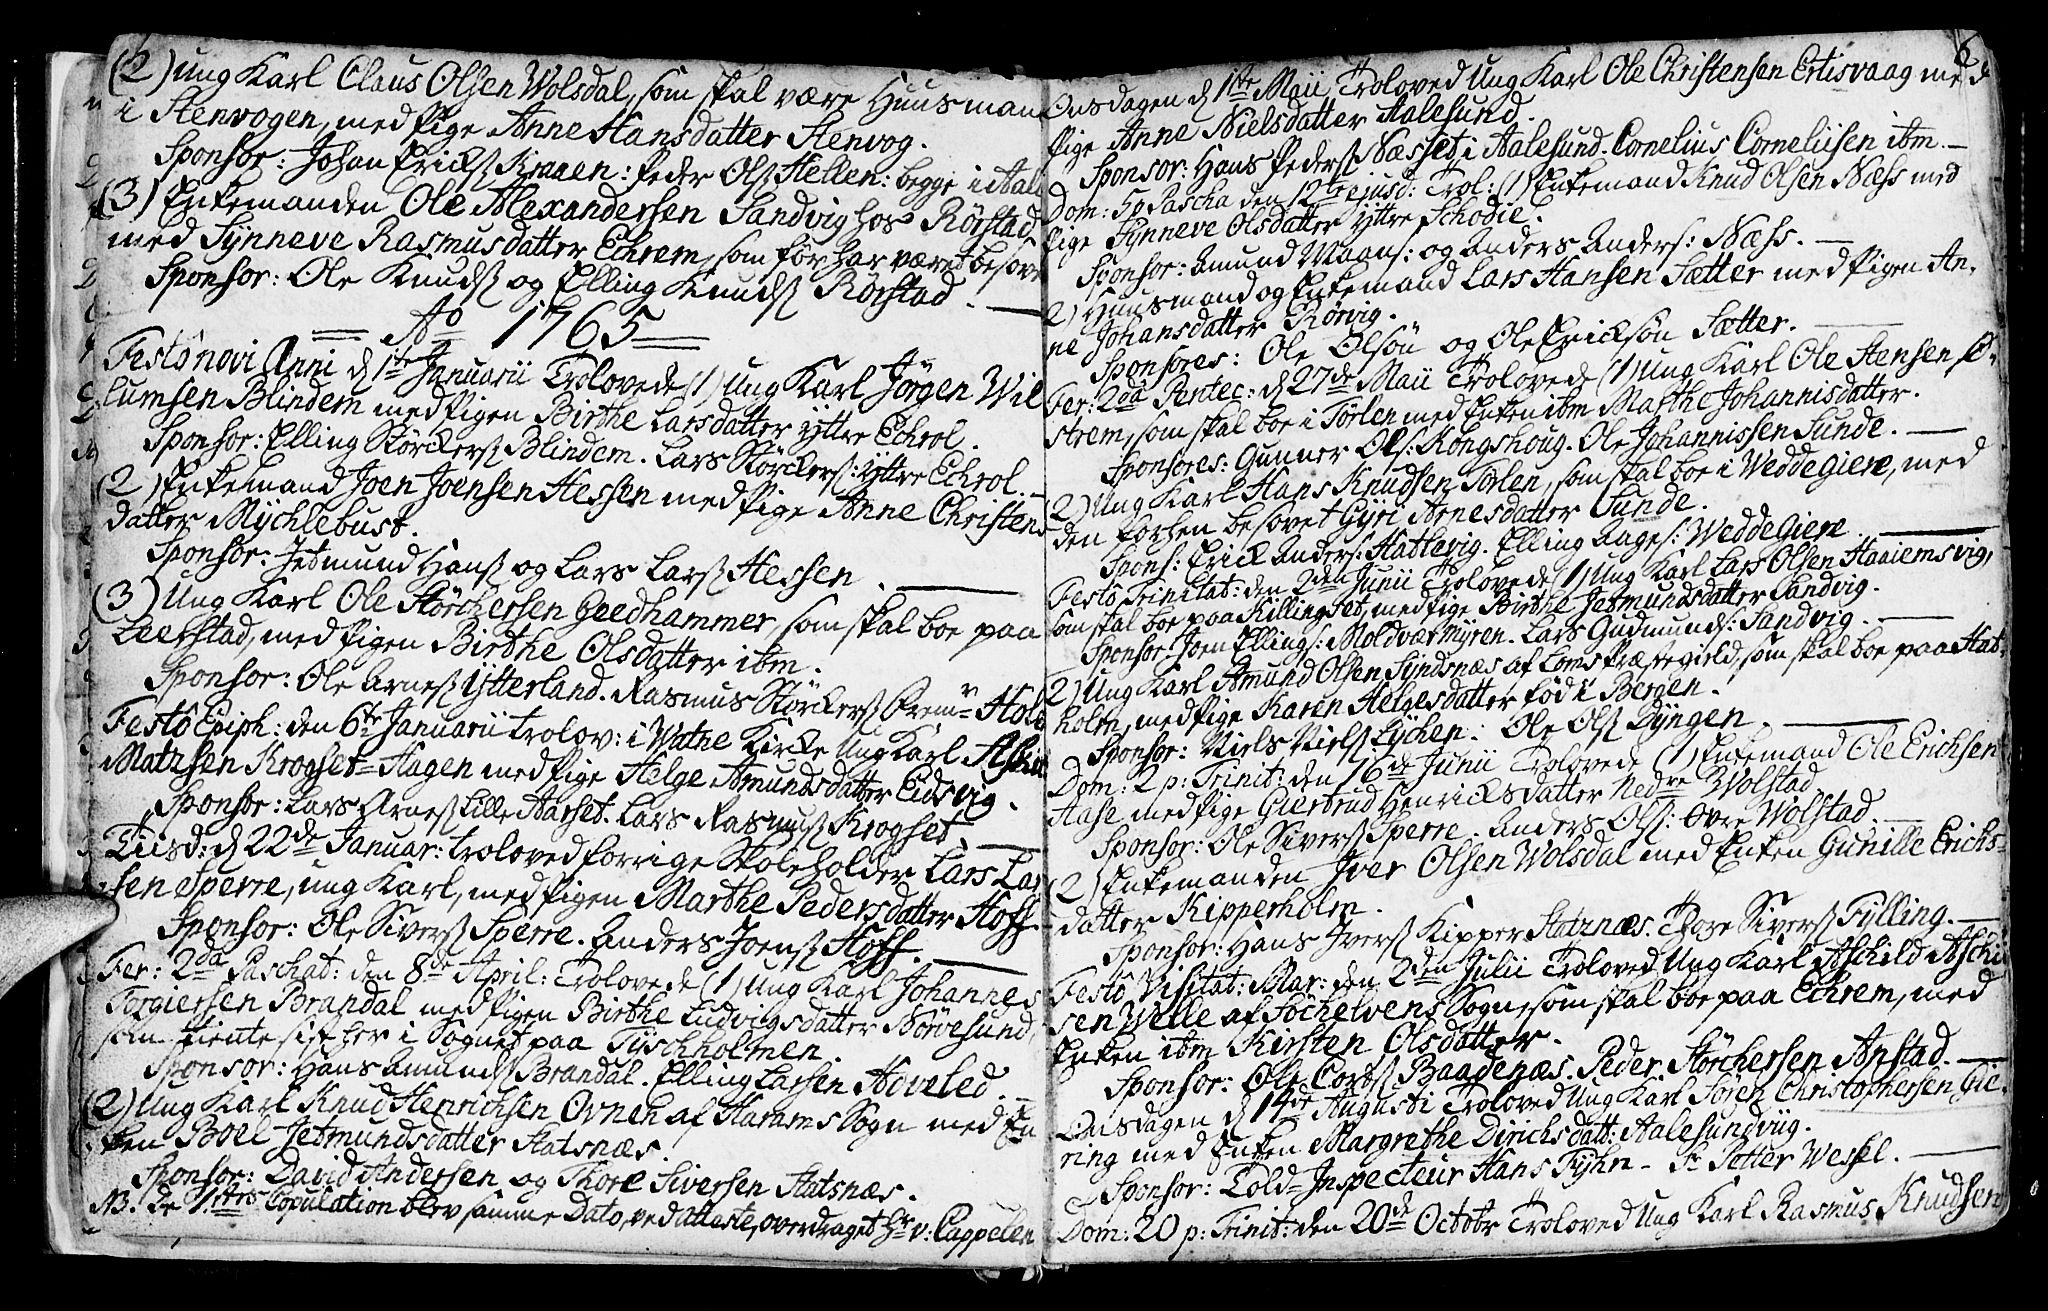 (2) Ung Karl Claus Olsen Wolsdal, som skal være Huusmand
i Stenvogen, med Pige Anne Hansdatter Stenvog.
Sponsor: Johan Ericks Kraaen: Peder Ols Hellen: begge i Aale
(3) Enkemanden Ole Alexandersen Sandvig hos Rörstad
med Synneve Rasmusdatter Echrem, som för har været besove
Sponsor: Ole Knuds og Elling Knuds Rörstad.
Ao 1765
Festo novi Anni d 1te Januarii Trolovede (1) Ung Karl Jörgen Wil
lumsen Blindem med Pigen Birthe Larsdatter yttre Echrol.
Sponsor: Elling Störckers Blindem. Lars Störckers: yttre Echrol.
(2) Enkemand Joen Joensen Hessen med Pige Anne Christens
datter Mychlebust.
Sponsor: Jetmund Hans og Lars Lars Hessen.
(3) Ung Karl Ole Störchersen Geedhammer, som skal boe paa
Leerstad, med Pigen Birthe Olsdatter ibm.
Sponsor: Ole Arnes Ytterland. Rasmus Störckers Brem
Festo Epiph: den 6te Januarii trolov: i Watne Kirke Ung Karl
Matzsen Krogset-Hagen med Pige Helge Amundsdatter Eidsvig.
Sponsor: Lars Arnes Lille Aarset. Lars Rasmus Krogset.
Tiisd: d 22de Januar: troloved forrige Skoleholder Lars Lar
sen Sperre, ung Karl, med Pigen Marthe Pedersdatter Hoff
Sponsor: Ole Sivers Sperre. Anders Joens Hoff.
Fer: 2da Paschat: den 8de April: Trolovede (1) Ung Karl Johannes
Torgiersen Brandal med Pigen Birthe Ludvigsdatter Nörvesund,
som tiente sist her i Sognet paa Tyschholmen.
Sponsor: Hans Amunds Brandal. Elling Larsen Adveled.
(2) Ung Karl Knud Henrichsen Ovneh af Harams Sogn med En
ken Boel Jetmundsdatter Statsnæs.
Sponsor: David Andersen og Thore Siversen Statsnæs.
NB. de 1stes Copulation blev samme Dato, ved atteste, overdraget Hr v: Cappelen
6
Onsdagen d 1te Maii Troloved Ung Karl Ole Christensen Ertisvaag med
Pige Anne Nielsdatter Aalesund.
Sponsor: Hans Peders Næsset i Aalesund. Cornelius Corneliisen ibm.
Dom: 5 p Pascha den 12te ejusd: Trol: (1) Enkemand Knud Olsen Næss med
Pige Synneve Olsdatter yttre Schodie.
Sponsor: Amund Maans: og Anders Anders: Næss.
2) Huusmand og Enkemand Lars Hansen Sætter med Pigen An,
ne Johansdatter Rörvig.
Sponsores: Ole Olsön og Ole Ericksön Sætter.
Fer: 2da Pentec: d 27de Maii Trolovede (1) Ung Karl Ole Stensen
strem, som skal boe i Törlen med Enken ibm Marthe Johannisdatter.
Sponsores: Gunner Ols: Kongshoug. Ole Johannissen Sunde.
2) Ung Karl Hans Knudsen Törlen, som skal boe i WeddeGiere, med
den forhen besovet Gyri Arnesdatter Sunde.
Spons: Erick Anders: Hattevig. Elling Aages: WeddeGiere.
Festo Trinitat: den 2den Junii Trolovede (1) Ung Karl Lars Olsen Haaiemsvig,
som skal boe paa Killingset, med Pige Birthe Jetmundsdatter Sandvig.
Sponsor Joen Ellings: Moldværmyren. Lars Gudmunds: Sandvig.
2) Ung Karl Amund Olsen Syndsnæs af Loms Præstegield, som skal boe paa Hat,
holm, med Pige Karen Helgesdatter föd i Bergen.
Sponsor: Niels Niels Lychen: Ole Ols Dyngen.
Dom: 2 p: Trinit: den 16de Junii Trolovede (1) Enkemand Ole Erichsen
Aase med Pige Giertrud Henricksdatter Nedre Wolstad.
Sponsor: Ole Sivers Sperre. Anders Ols: Ovre Wolstad.
(2) Enkemanden Iver Olsen Wolsdal med Enken Gunille Erichs-
datter Kipperholm.
Sponsor: Hans Ivers Kipper Statznæs. Thore Sivers Fylling.
Festo Visitat: Mar: den 2den Julii Troloved Ung Karl Aschild Aschil
sen Welle af Söchelvens Sogn, som skal boe paa Echrem, med
Enken ibm Kirsten Olsdatter.
Sponsor: Ole Cords Baadenæs. Peder Störchersen Anstad.
Onsdagen d 14de Augusti Troloved Ung Karl Sören Christophersen Gie,
ring med Enken Margrethe Dirichsdatt: Aalesundviig.
Sponsor: Told-Inspecteur Hans Fyhn - Sr Petter Wessel.
Dom: 20 p: Trinit: den 20de Octobr Troloved Ung Karl Rasmus Knudsen